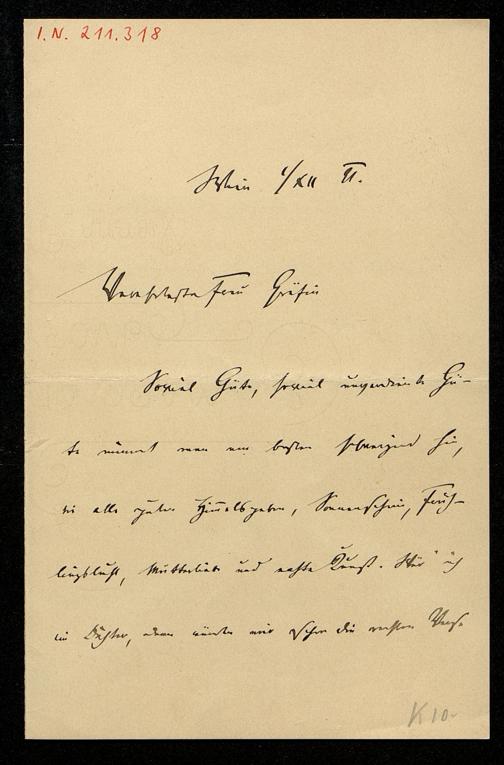 I.N. 211.318
Wien 1/XII
Verehrteste Frau Gräfin
Soviel Güte, soviel unverdiente Gü-
te nimmt man am besten schweigend hin,
wie alle guten Himmelsgaben, Sonnenschein, Früh-
lingsluft, Mutterliebe und echte Kunst. Wär' ich
ein Dichter, dann würden mir schon die rechten Verse
K 10-